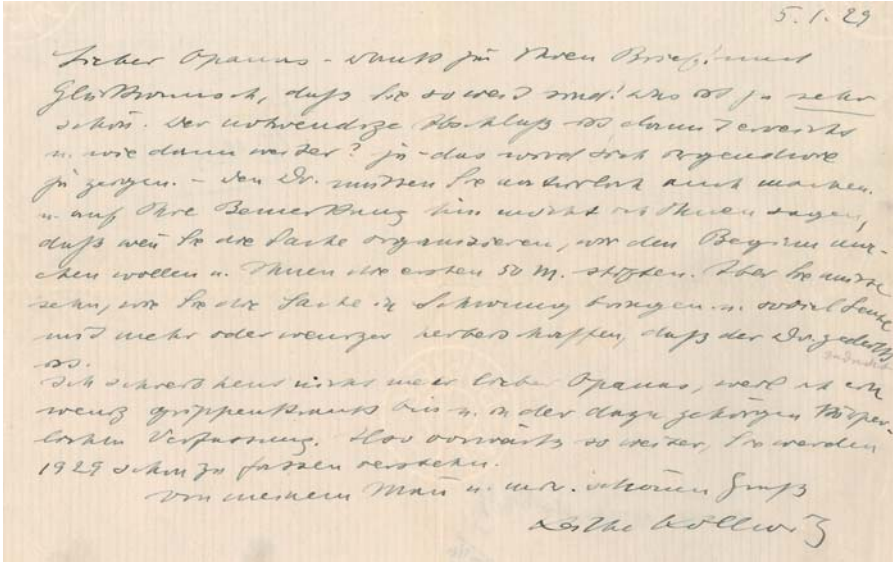 5.1.29
Lieber Opanas - Dank für Ihren Brief! und
Glückwunsch, daß Sie so weit sind! Das ist ja sehr
schön. Der notwendige Abschluß ist damit erreicht
u. wie dann weiter? ja - das wird sich irgendwie
ja zeigen. - Den Dr. müssen Sie natürlich auch machen.
u. auf Ihre Bemerkung hin möcht ich Ihnen sagen,
daß wen̄ Sie die Sache organisieren, wir den Beginn ma-
chen wollen u. Ihnen die ersten 50 M. stiften. Aber Sie müssen
sehn, wie Sie die Sache in Schwung bringen u. soviel Leute
mit mehr oder weniger herbeischaffen, daß der Dr. gedeckt
ist.
Ich schreib heut nicht mehr lieber Opanas, weil ich ein
wenig grippenkrank bin u. in der dazu gehörigen körper-
lichen Verfassung. Also vorwärts so weiter, Sie werden
1929 schon zu fassen verstehn.
Von meinem Man̄ u. mir schönen Gruß
Käthe Kollwitz